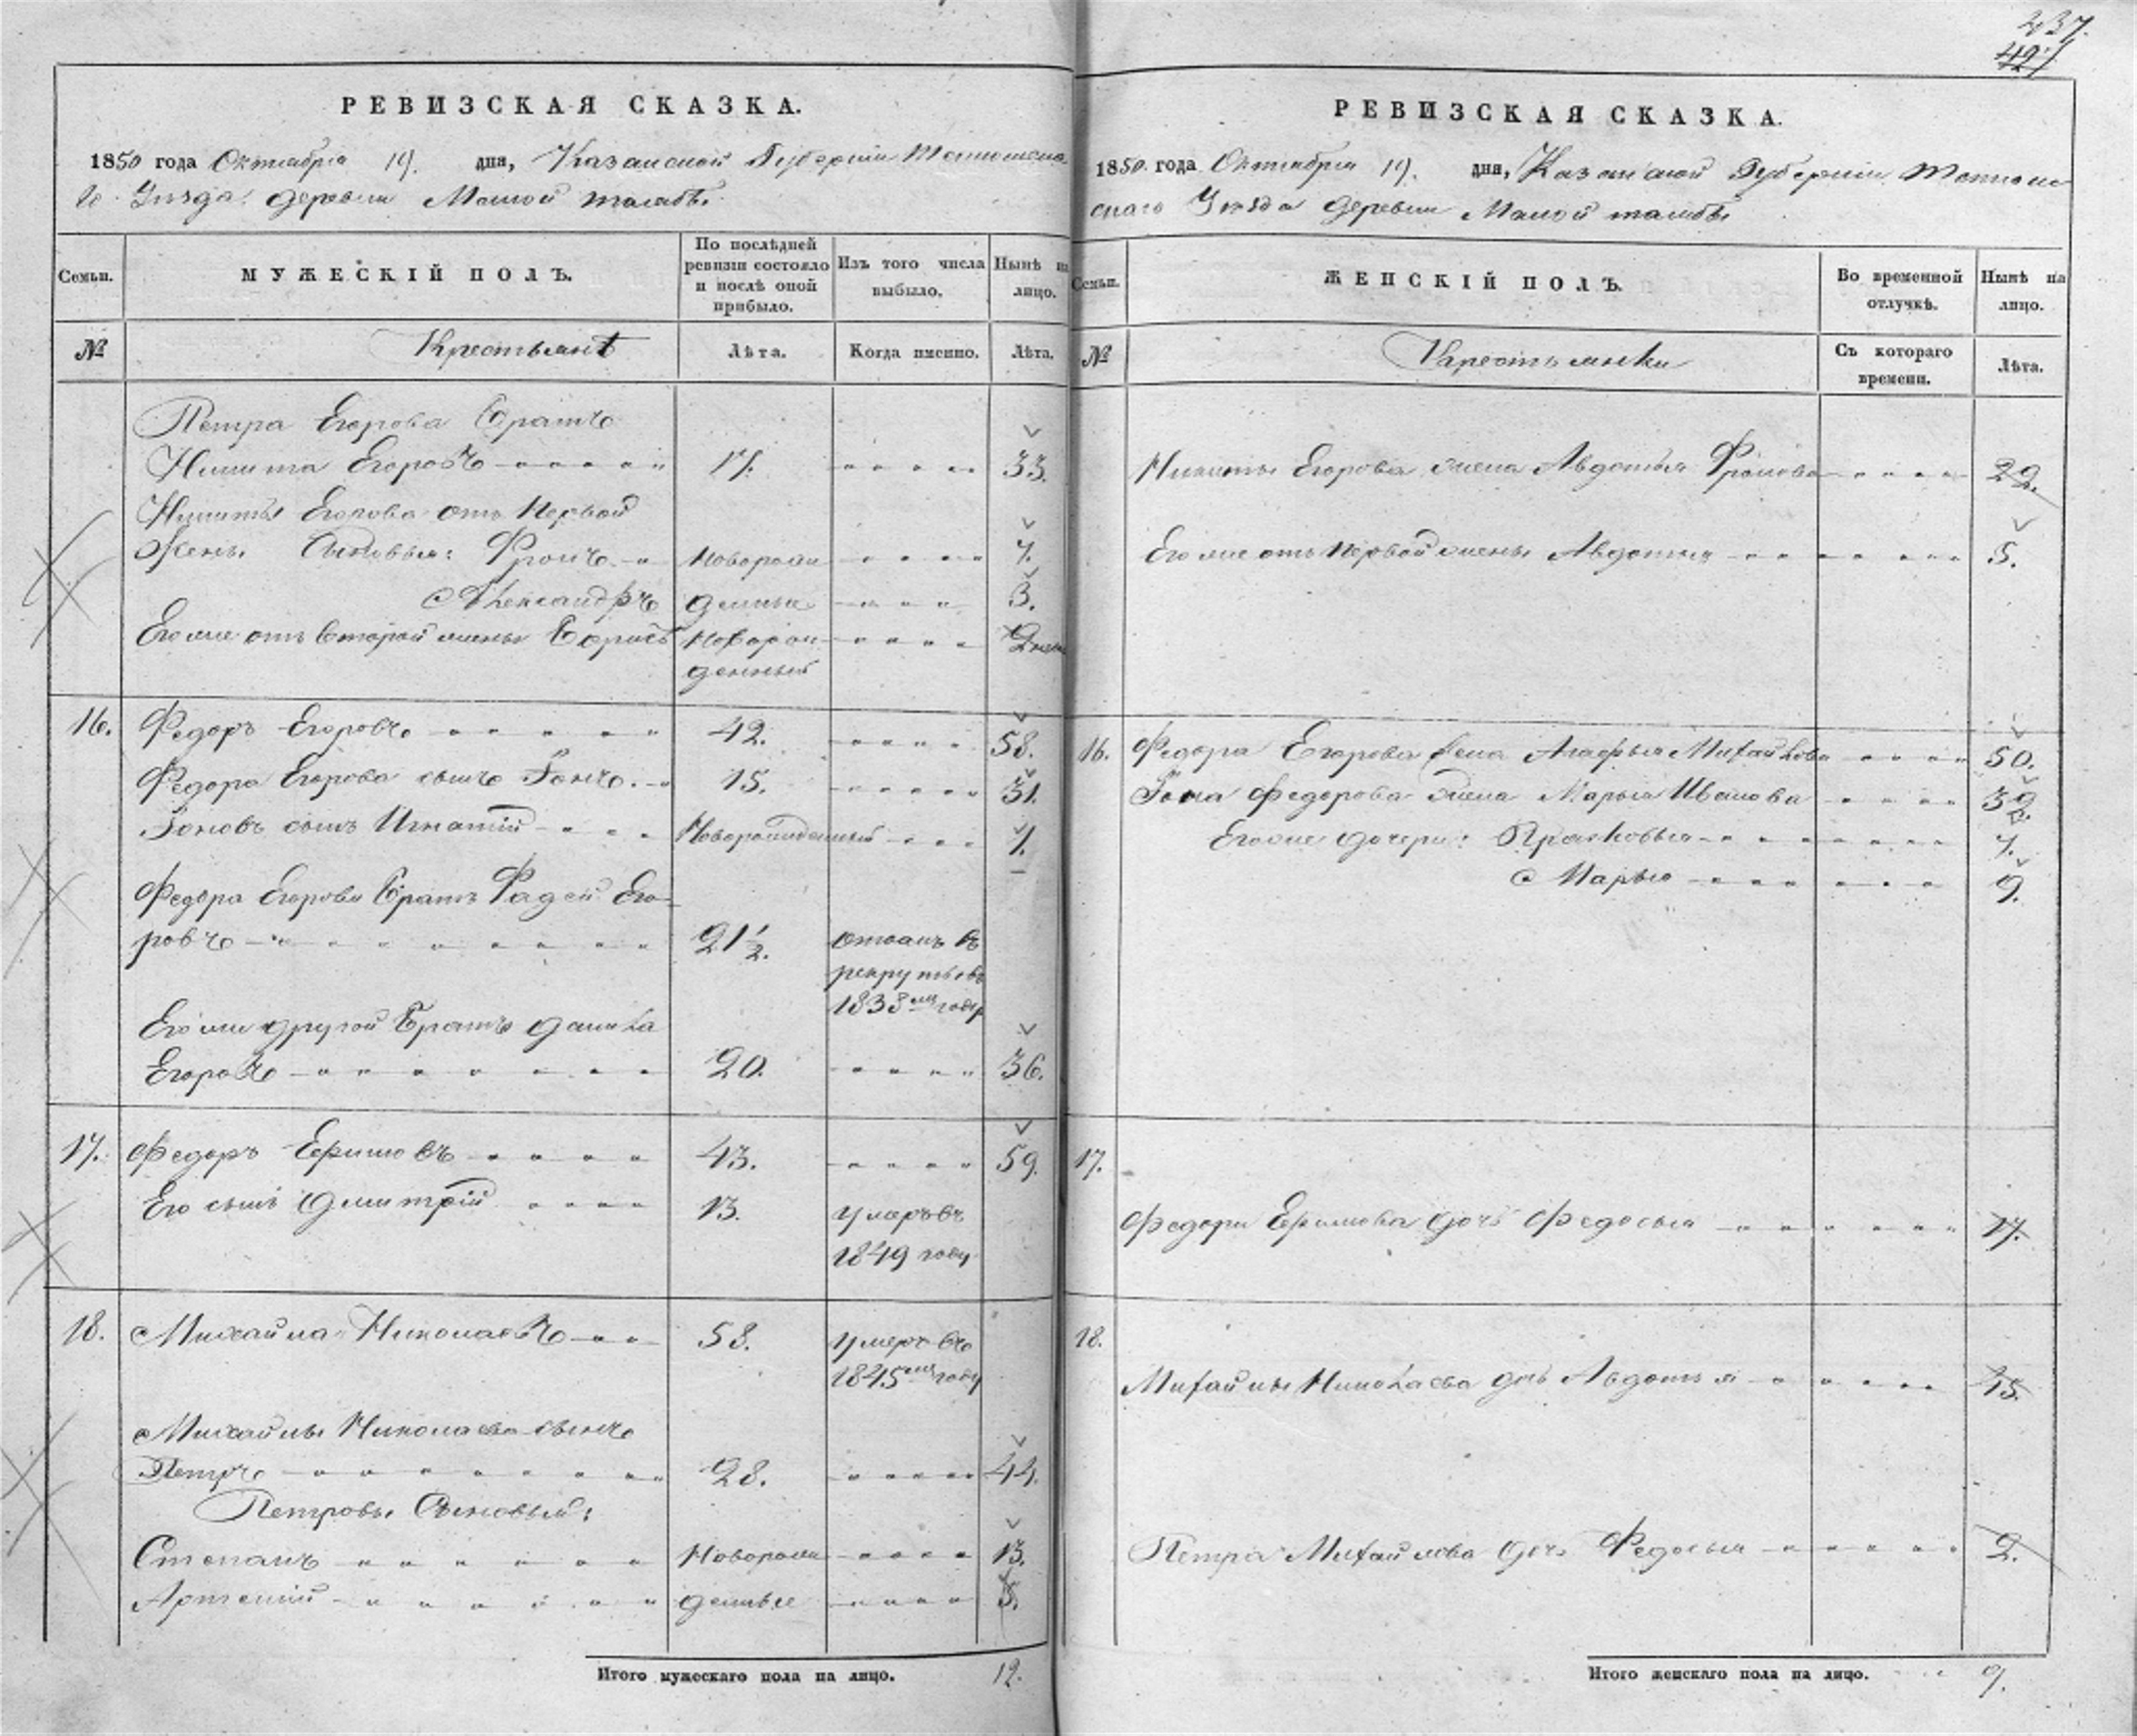 237.
497
РЕВИЗСКАЯ СКАЗКА.
1850 года Октября 19. дня, Казанской Губернiи
Уѣзда деревни Малой
Семьи. МУЖЕСКIЙ ПОЛЪ. По послѣдней ревизiи состояло и послѣ оной прибыло. Изъ того числа выбыло. Нынѣ на лицо.
№ Крестьянѣ Лѣта. Когда именно. Лѣта.
Петра Егорова братъ
Никита Егоровъ 17. 33.
Никиты Егорова отъ первой
жены сыновья: Фролъ новорож 7.
Александръ денные 3.
Его же отъ второй жены Борисъ новорож
денный
16. Федоръ Егоровъ 42. 58.
Федора Егорова сынъ Iонъ. 15. 31.
Iоновъ сынъ Игнатiй Новорожденный 7.
Федора Егорова братъ Фадей Его-
ровъ 21 1/2. отданъ въ
рекруты въ
1838мъ году
Его же другой братъ Данила
Егоровъ 20. 36.
17. Федоръ Ефимовъ 43. 59.
Его сынъ Дмитрiй 13. умеръ въ
1849 году
18. Михайла Николаевъ 58. умеръ въ
1845мъ году
Михайлы Николаева сынъ
Петръ 28. 44.
Петровы сыновья:
Степанъ Новорож 13.
Артемiй денные 5.
Итого мужескаго пола на лицо. 12.
РЕВИЗСКАЯ СКАЗКА.
1850 года Октября 19. дня, Казанской Губернiи
скаго Уѣзда деревни Малой
Семьи. ЖЕНСКIЙ ПОЛЪ. Во временной отлучкѣ. Нынѣ на лицо.
№ Крестьянки Съ котораго времени. Лѣта.
Никиты Егорова жена Авдотья Фролова 22.
Его же отъ первой жены Авдотья 5.
16. Федора Егорова жена Агафья Михайлова 50.
Iона Федорова жена Марья Иванова
Его же дочери: Прасковья 7.
Марья
17.
Федора Ефимова дочь Федосья 17.
18.
Михайлы Николаева дочь Авдотья 15.
Петра Михайлова дочь Федосья 2.
Итого женскаго пола на лицо. 9.